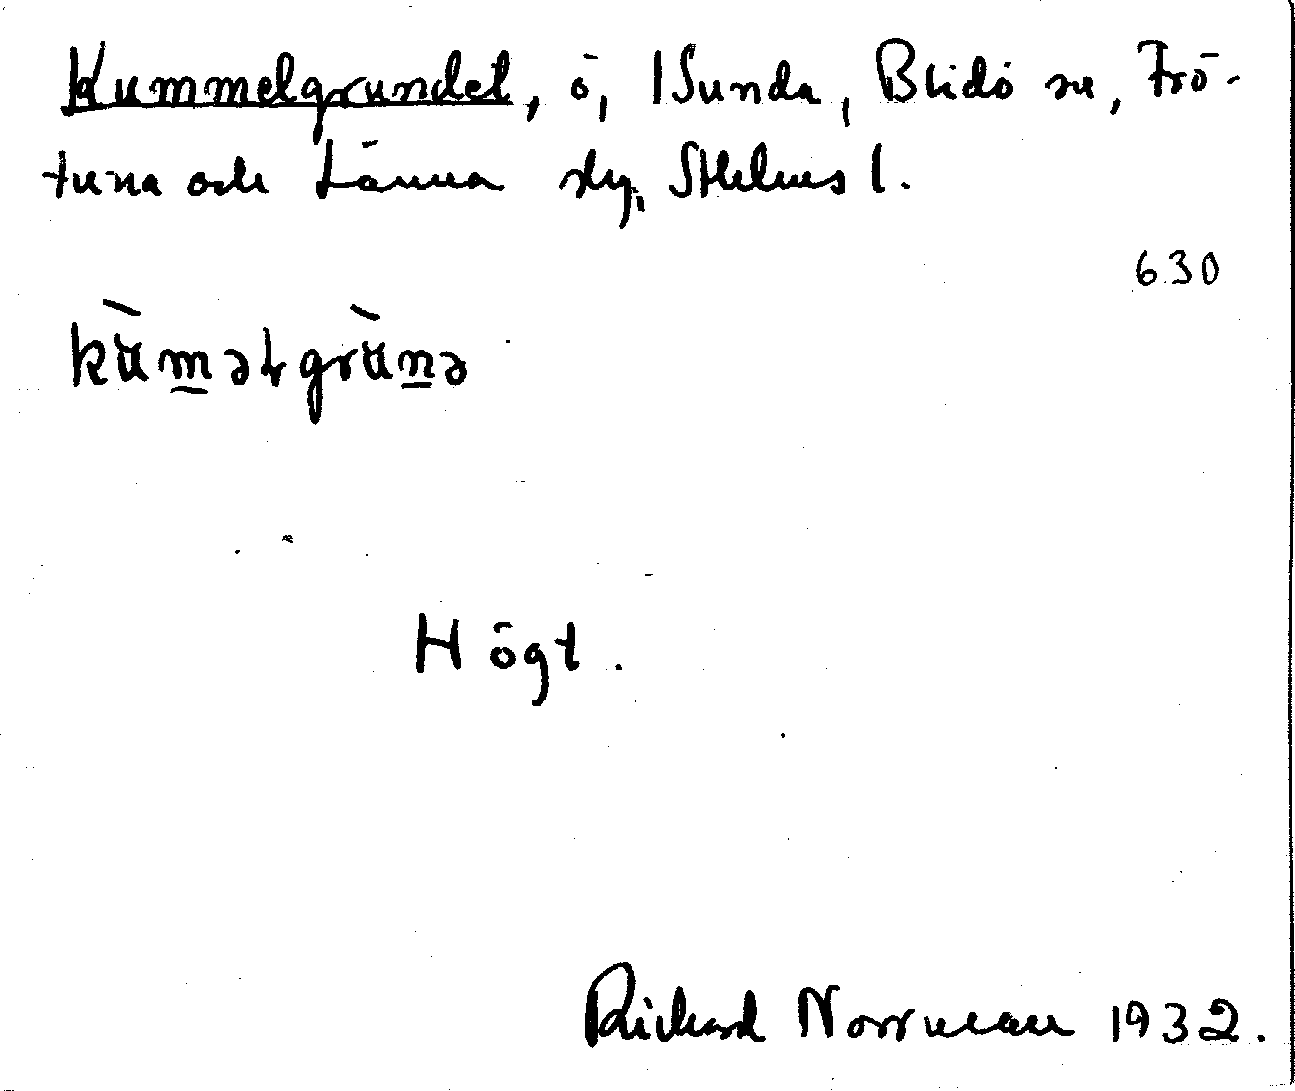 Kummelgrundet, ö, 1 Sunda, Blidö sn, Frö-
tuna och Länna slg, Sthlms l.
630
kùməɫgrùnə
Högt.
Richard Norrman 1932.